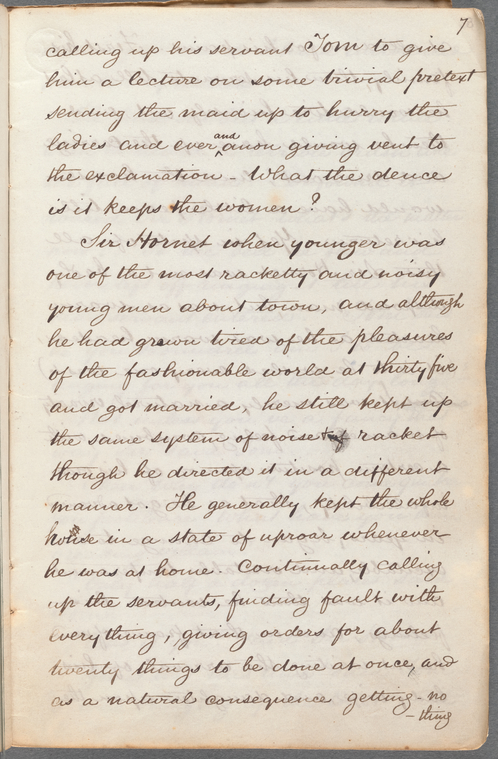 7
calling up his servant Tom to give
him a lecture on some trivial pretext
sending the maid up to hurry the
ladies and ever and anon giving vent to
the exclamation - What the dence
is it keeps the women?
Sir Hornet when younger was
one of the most racketty and noisy
young men about town, and although
he had grown tired of the pleasures
of the fashionable world at thirty five
and got married, he still kept up
the same system of noise & racket
though he directed it in a different
manner. He generally kept the whole
house in a state of uproar whenever
he was at home. Continually calling
up the servants, finding fault with
everything, giving orders for about
twenty things to be done at once, and
as a natural consequence getting - no
- thing